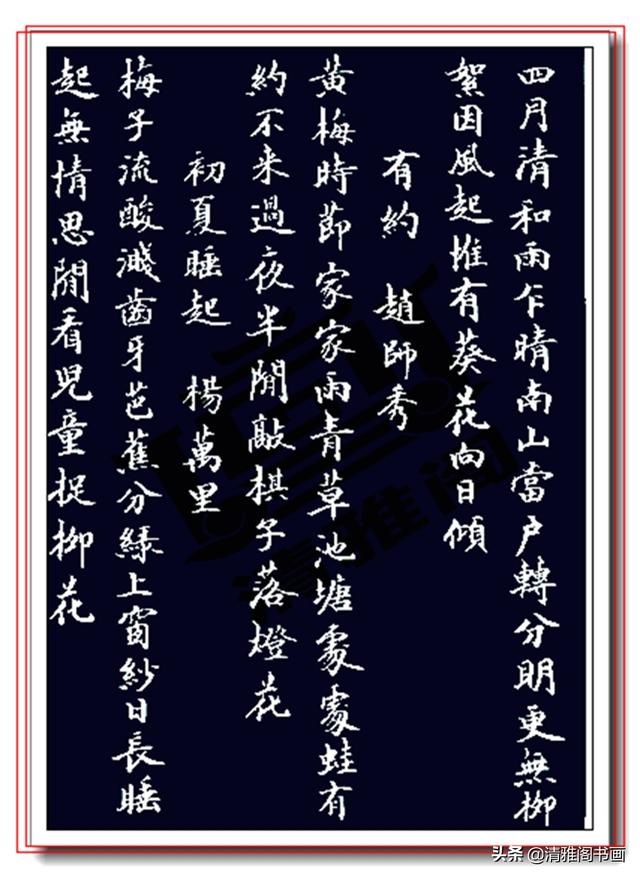 四月清和雨乍晴南山當户轉分明更無柳
絮因風起惟有葵花向日傾
有約 趙師秀
黄梅時節家家雨青草池塘處處蛙有
約不来過夜半閒敲棋子落燈花
初夏睡起 楊萬里
梅子流酸濺齒牙芭蕉分綠上窗紗日長睡
起無情思閒看児童捉柳花
清雅阁
头条@清雅阁书画